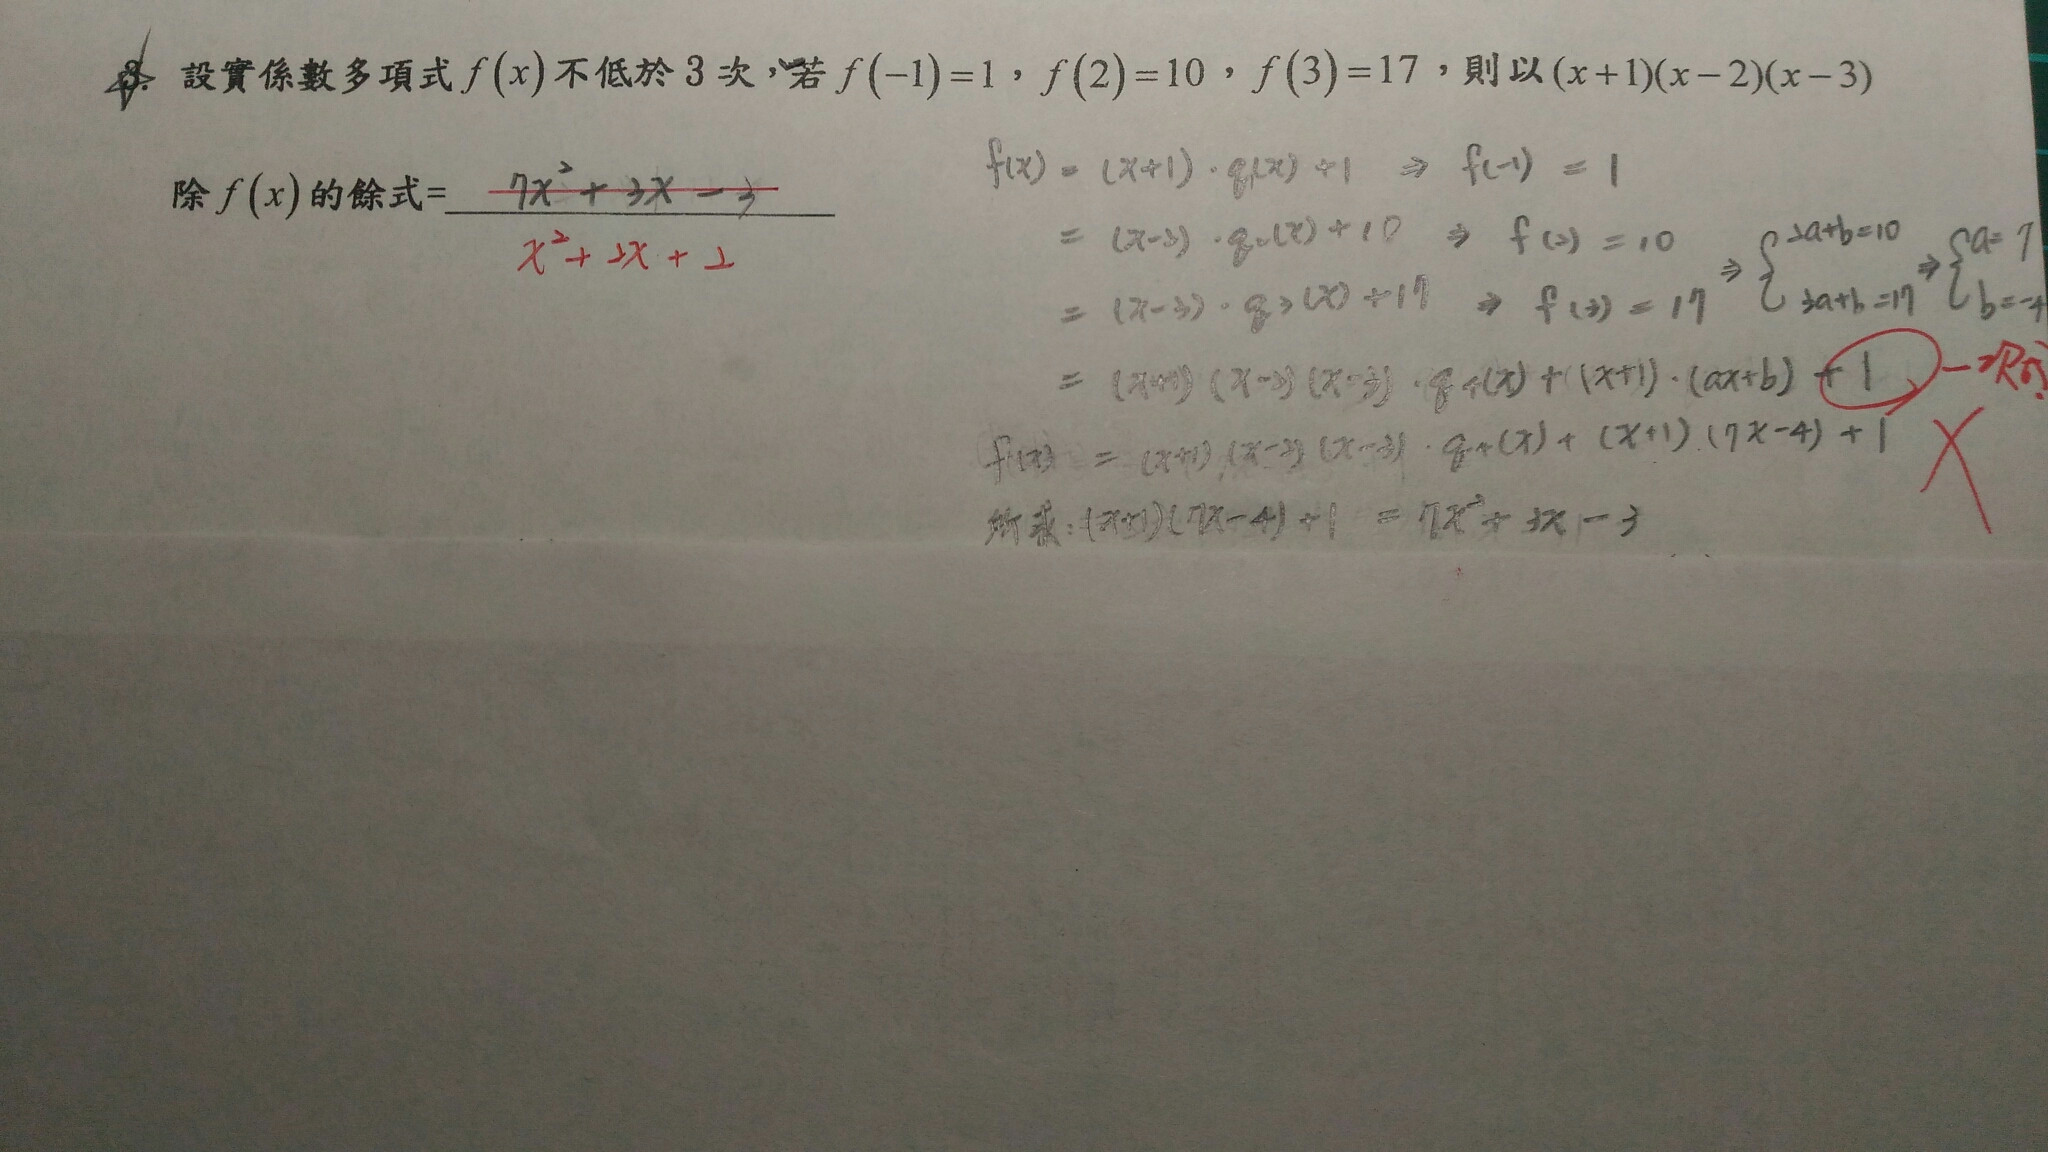 3. 設實係數多項式 f(x) 不低於 3 次，若 f(-1)=1，f(2)=10，f(3)=17，則以 (x+1)(x-2)(x-3)
除 f(x) 的餘式= 7x²+3x-3
x²+2x+2
f(x) = (x+1)·q₁(x)+1 ⇒ f(-1) = 1
= (x-2)·q₂(x)+10 ⇒ f(2) = 10
= (x-3)·q₃(x)+17 ⇒ f(3) = 17 ⇒ { 2a+b=10 3a+b=17 ⇒ { a=7 b=-4
= (x+1)(x-2)(x-3)·q₄(x)+(x+1)·(ax+b)+1 一次
f(x) = (x+1)(x-2)(x-3)·q₄(x)+(x+1)(7x-4)+1
所求:(x+1)(7x-4)+1 = 7x²+3x-3